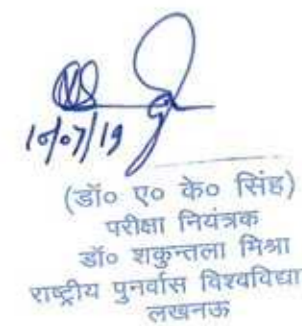 10/07/19
(डॉ० ए० के० सिंह)
परीक्षा नियंत्रक
डॉ० शकुन्तला मिश्रा
राष्ट्रीय पुनर्वास विश्वविद्या
लखनऊ